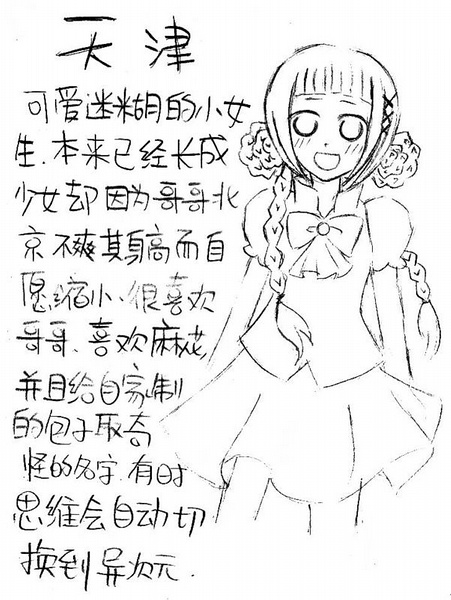 天津
可爱迷糊的小女
生.本来已经长成
少女却因为哥哥北
京不爽其身高而自
愿缩小、很喜欢
哥哥、喜欢麻花,
并且给自家制
的包子取奇
怪的名字.有时
思维会自动切
换到异次元.